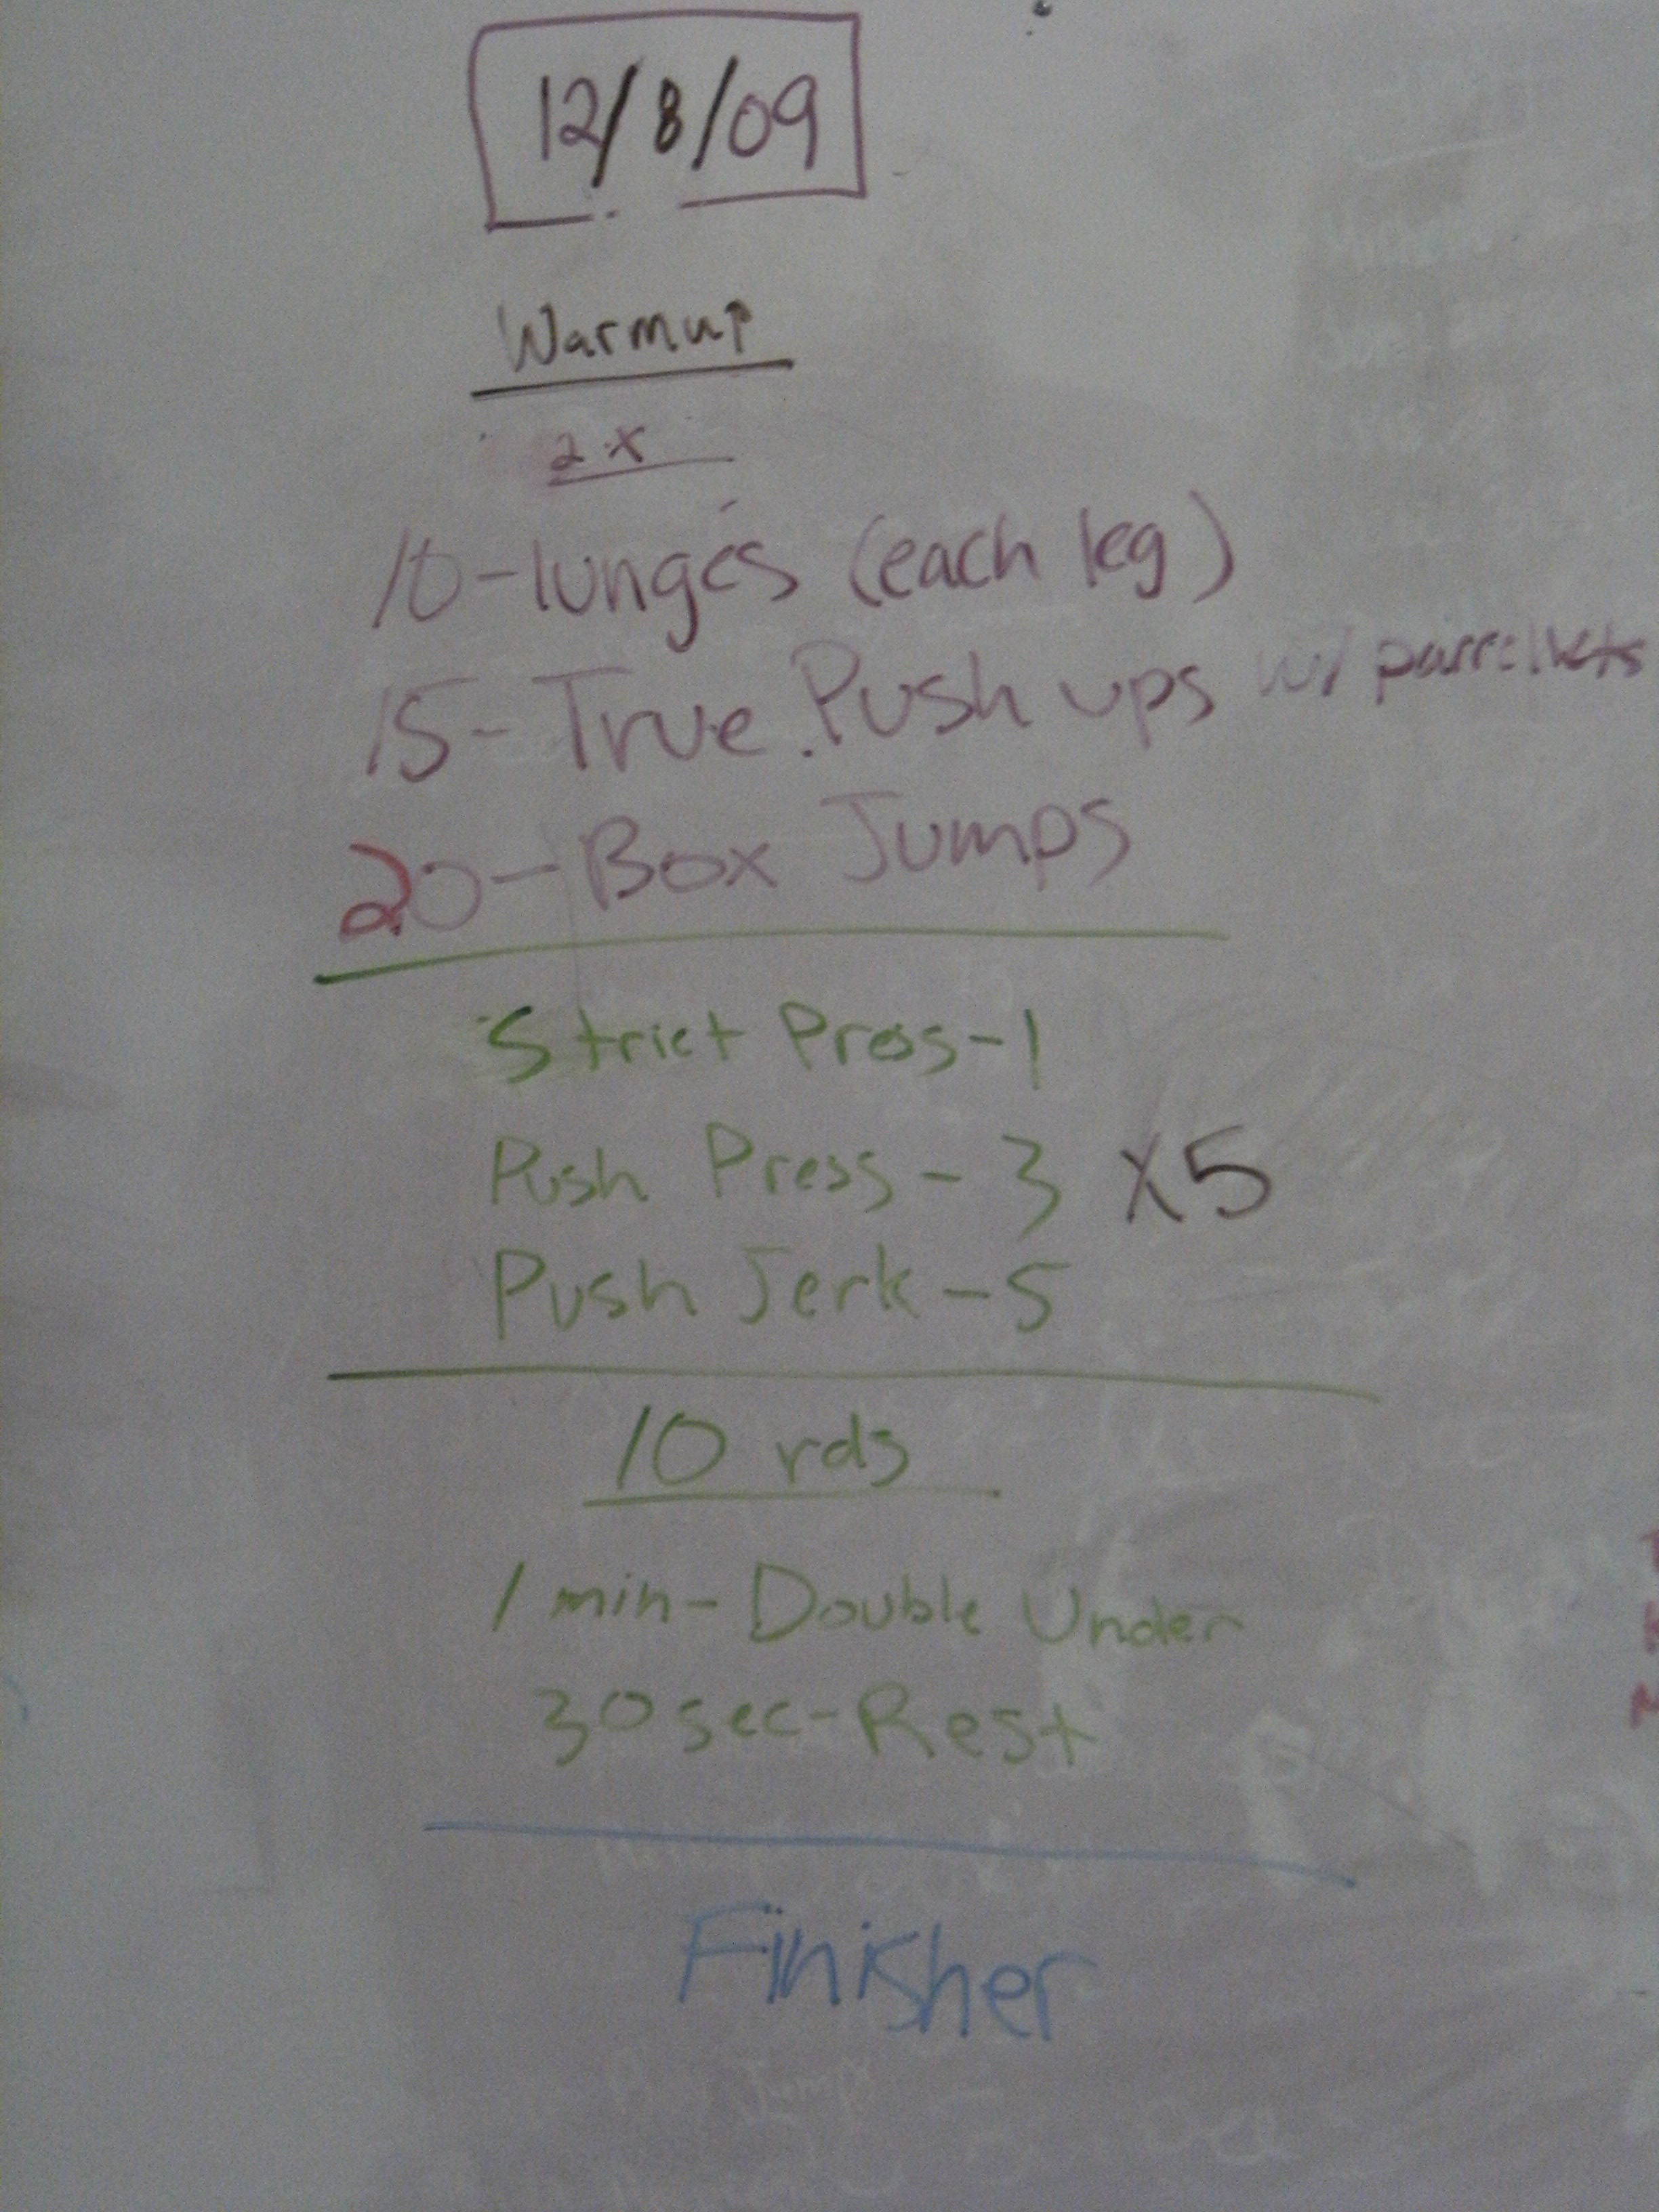 12/8/09
Warmup
2x
10-lunges (each leg)
15-True Push ups w/ parrellets
20-Box Jumps
Strict Press-1
Push Press-3 X5
Push Jerk-5
10 rds
1 min-Double Under
30sec-Rest
Finisher